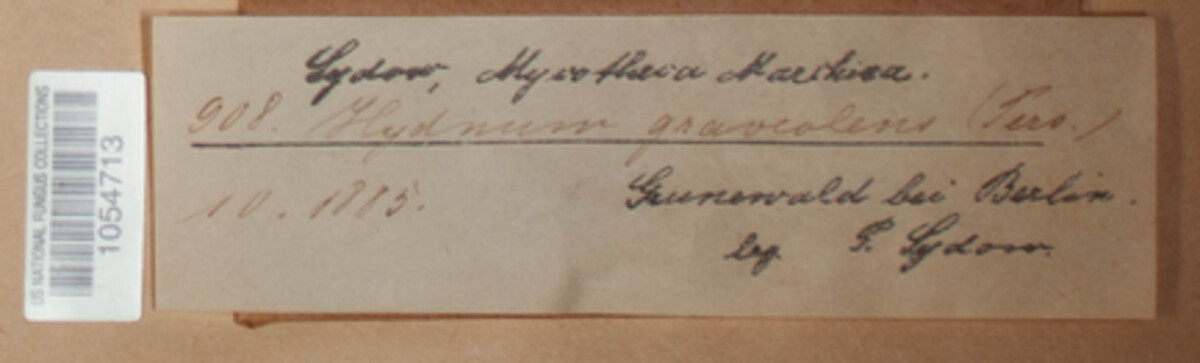 US NATIONAL FUNGUS COLLECTIONS
1054713
Sydow, Mycotheca Marchica.
908. Hydnum graveolens (Pers.)
10. 1885.
Grunewald bei Berlin.
leg P. Sydow.